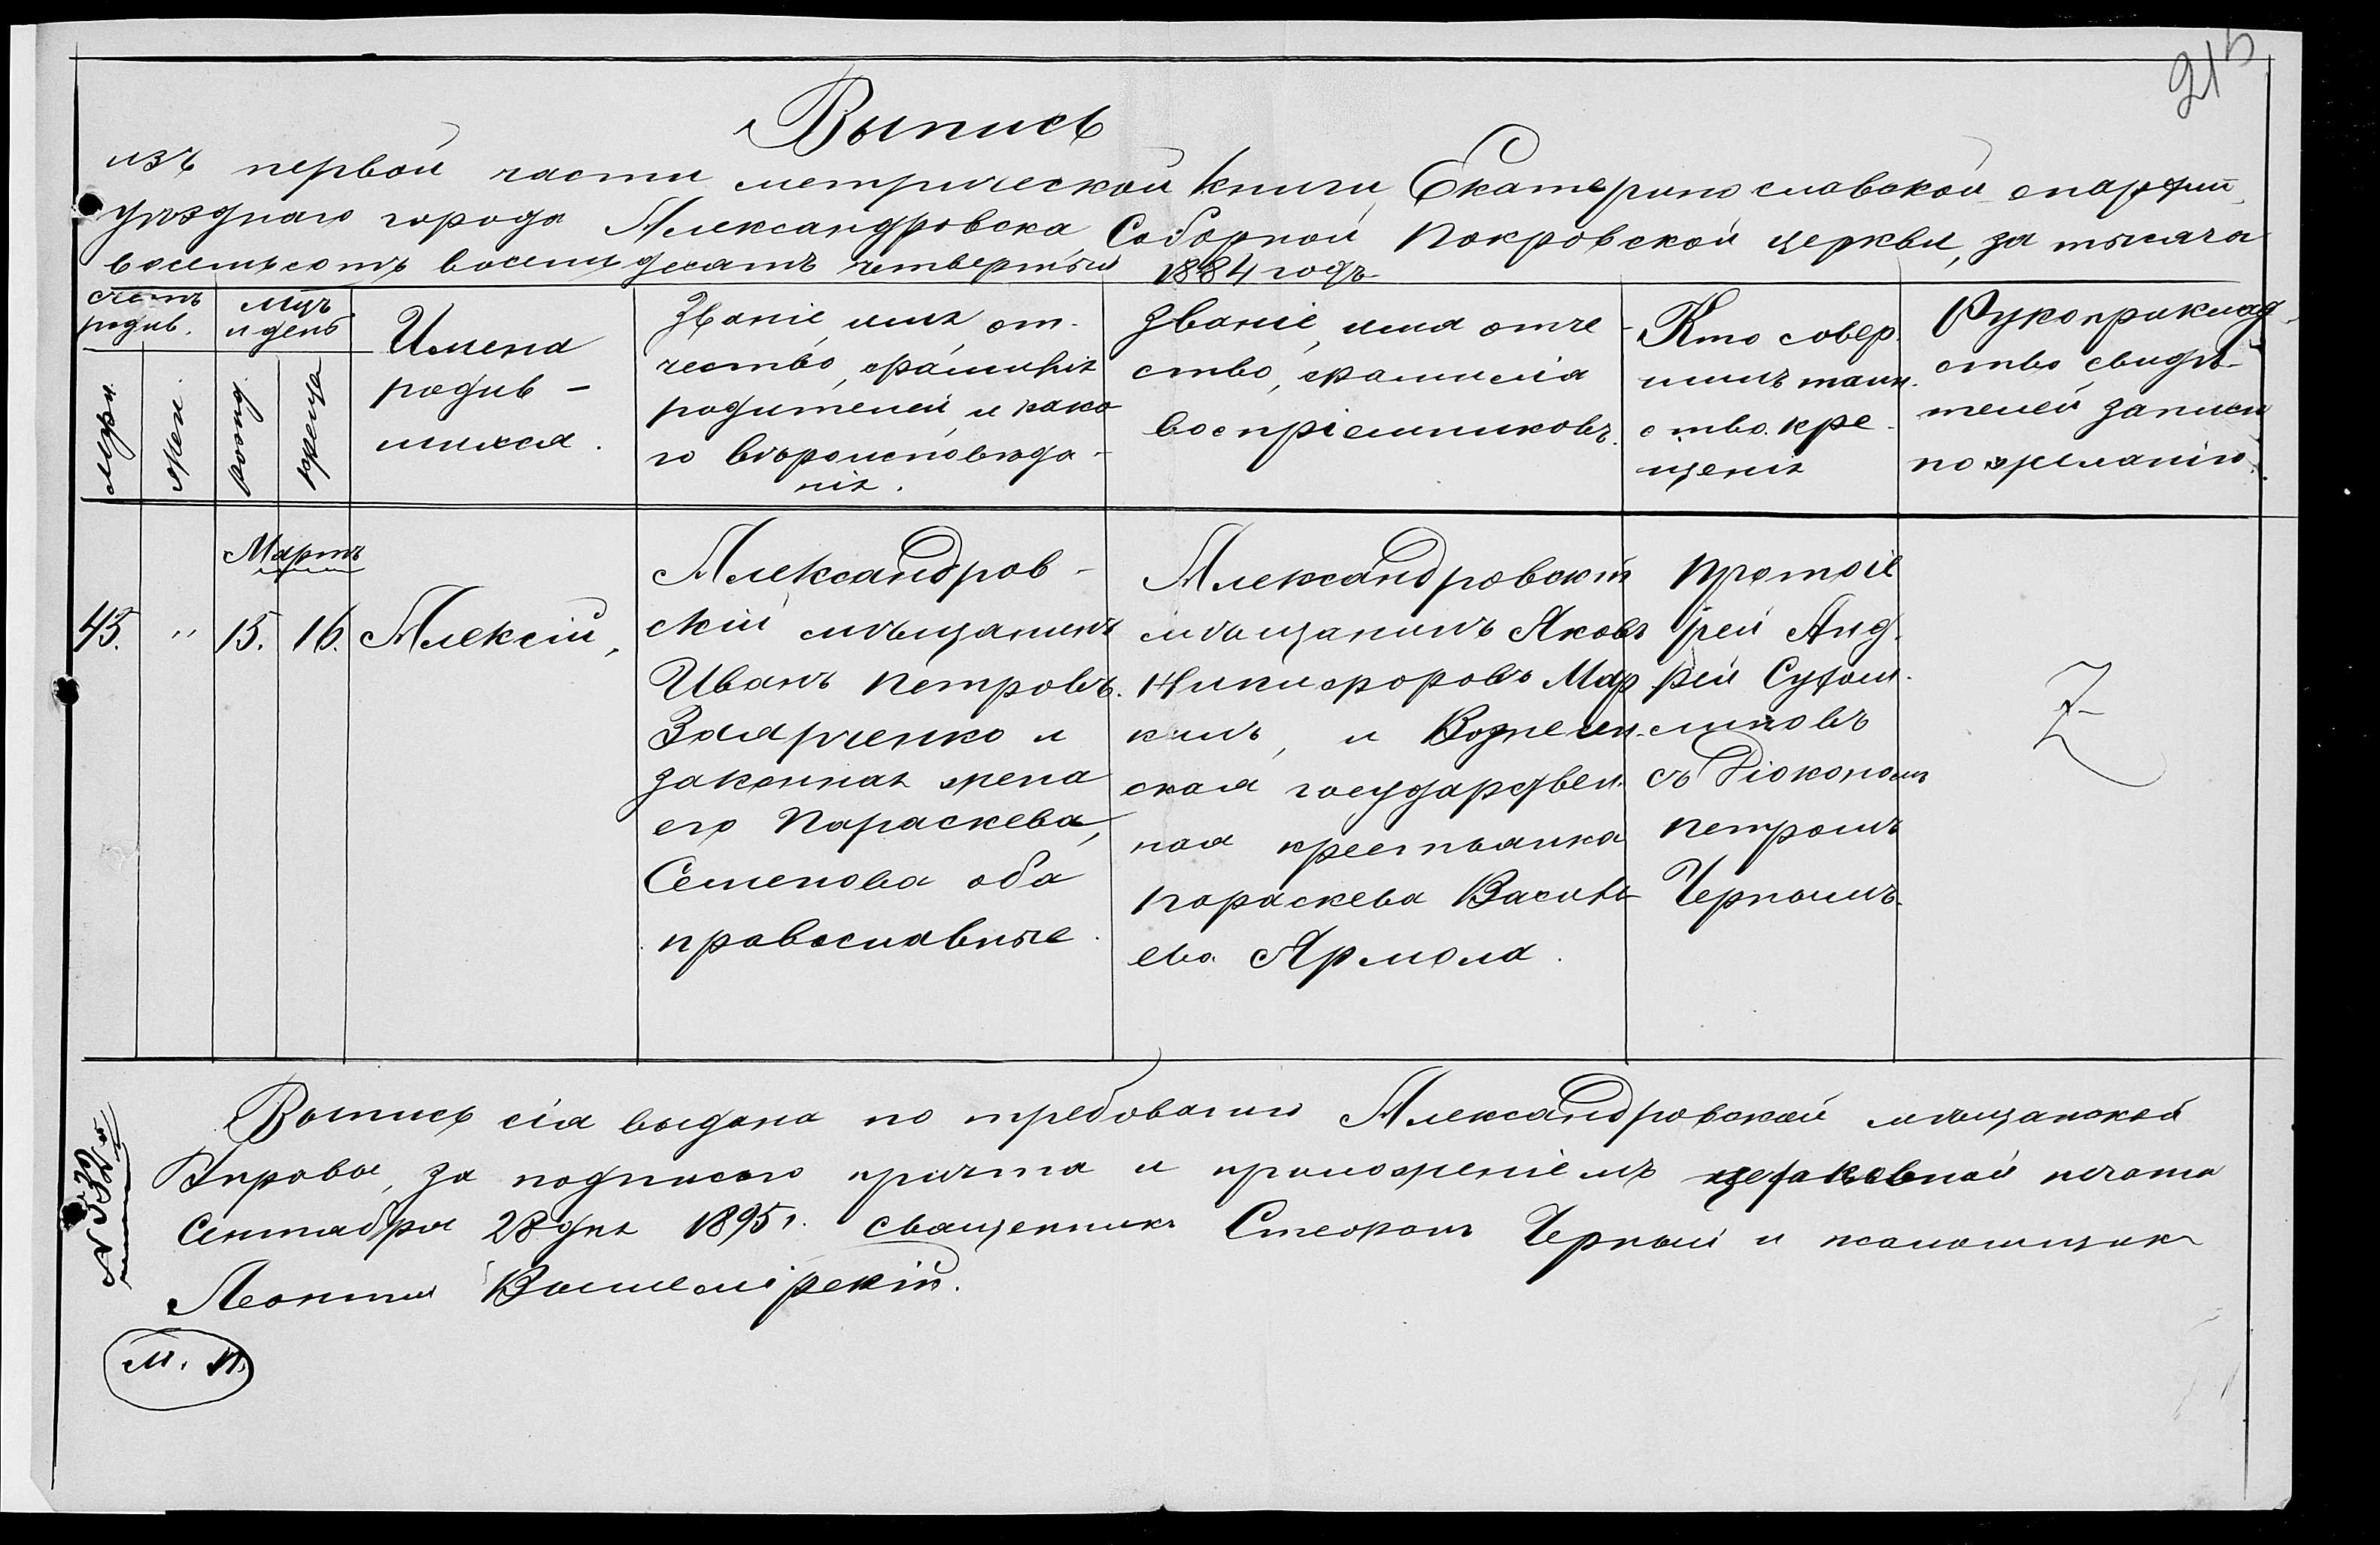 215
Выпись
изъ первой части метрической книги Екатеринославской епархіи,
уѣзднаго города Александровска Соборной Покровской церкви, за тысяча
восемьсотъ восемьдесатъ четвертый 1884 годъ
счетъ
родив.
Муж.
Жен.
мцъ
и день
рожд.
креще
Имена
родив-
шихся.
Званіе, имя, от-
чество, фамилія
родителей, и како
го вѣроисповѣда-
нія.
Званіе, имя отче-
ство, фамилія
воспріемниковъ.
Кто совер.
шилъ таин.
ство кре-
щенія
Рукоприклад-
ство свидѣ-
телей записи
по желанію.
Мартъ
45. " 15. 16. Алексій,
Александров-
скій мѣщанинъ
Иванъ Петровъ.
и
законная жена
его Параскева,
Семенова оба
православные.
Александровскій
мѣщанинъ Яковъ
Никифоровъ Мар
кинъ, и Вознесен-
ская государствен.
ная крестьянка
Параскева Василь-
ева Ярмола.
Протоіе
рей Анд.
рей
съ Діокономъ
Петромъ
Чернымъ.
Z
Выпись сія выдана по требованию Александровской мѣщанской
Управы, за подписью причта и приложеніемъ церковной печати
Сентабря 28 дня 1895 г. священникъ Стефанъ Черный и псаломщикъ
Леонтий
№
М. П.